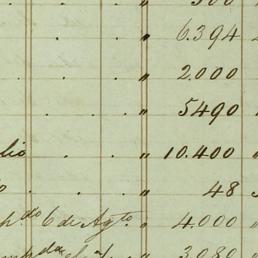 " 6.394
" 2.000
" 5490
lio " 10.400 "
o " 48
do 6 de Agto " 4.000 "
" 3.080